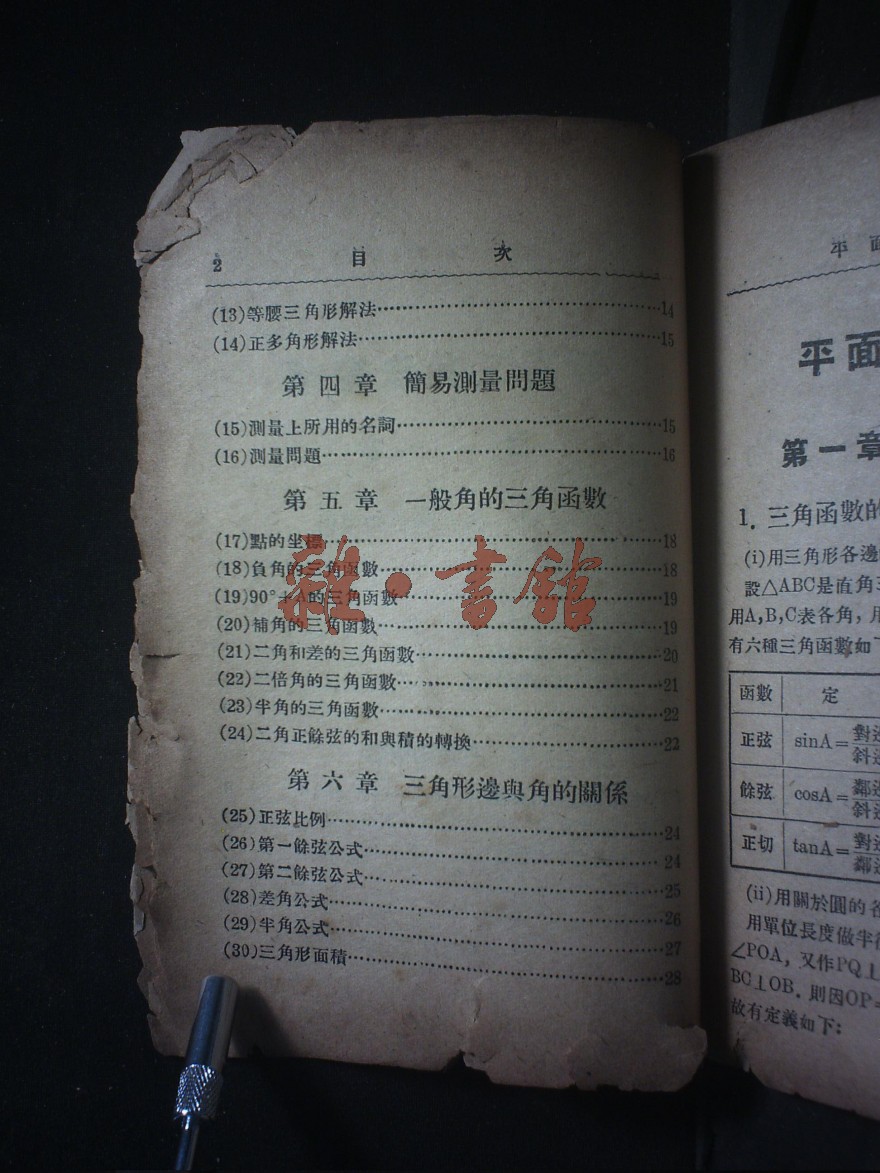 2 目 次
(13)等腰三角形解法…………14
(14)正多角形解法…………15
第四章 簡易測量問題
(15)測量上所用的名詞…………15
(16)測量問題…………16
第五章 一般角的三角函數
(17)點的坐標…………18
(18)負角的三角函數…………18
(19)90°+A的三角函數…………19
(20)補角的三角函數…………19
(21)二角和差的三角函數…………20
(22)二倍角的三角函數…………21
(23)半角的三角函數…………22
(24)二角正餘弦的和與積的轉換…………22
第六章 三角形邊與角的關係
(25)正弦比例…………24
(26)第一餘弦公式…………24
(27)第二餘弦公式…………25
(28)差角公式…………26
(29)半角公式…………27
(30)三角形面積…………28
雜·書館
平面
平面
第一章
1. 三角函數的
(i)用三角形各邊
設△ABC是直角三
用A,B,C表各角，用
有六種三角函數如下
函數 定
正弦 sinA=對邊/斜邊
餘弦 cosA=鄰邊/斜邊
正切 tanA=對邊/鄰邊
(ii)用關於圓的名
用單位長度做半徑
∠POA，又作PQ⊥
BC⊥OB．則因OP=
故有定義如下：